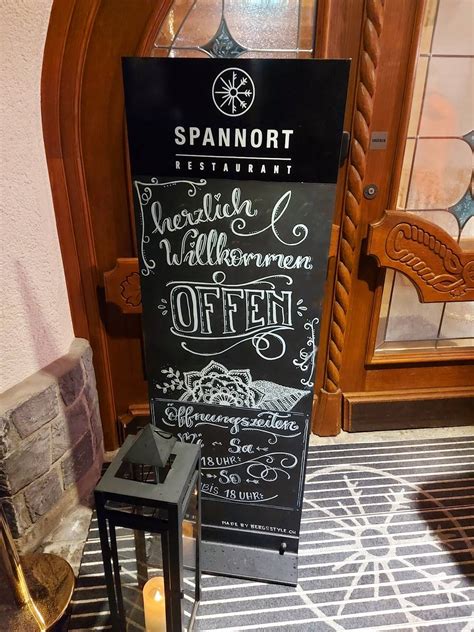 SPANNORT
RESTAURANT
herzlich
Willkommen
OFFEN
Öffnungszeiten
Mi - Sa
18 UHR
So
BIS 18 UHR
MADE BY BERGSTYLE.CH